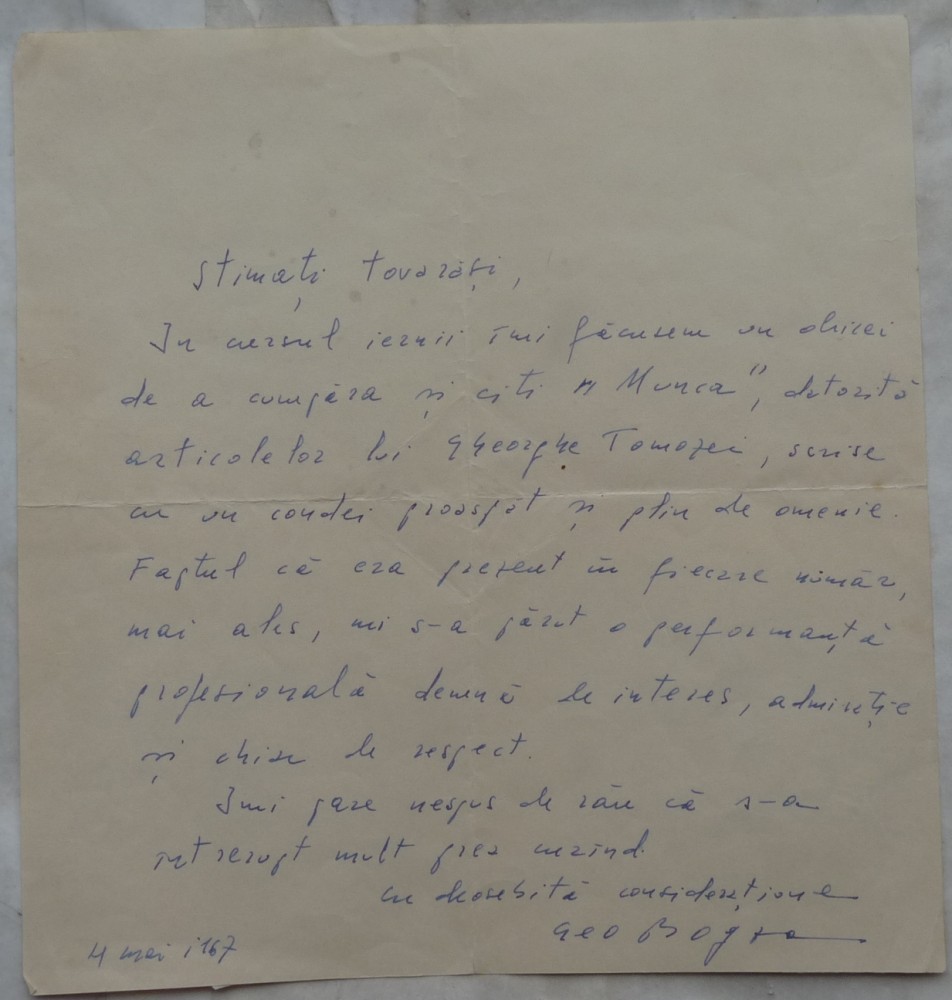 Stimați tovarăși,
In cursul iernii îmi făcusem un obicei
de a cumpăra și citi „Munca”, datorită
articolelor lui Gheorghe Tomozei, scrise
cu un condei proaspăt și plin de omenie.
Faptul că era prezent în fiecare număr,
mai ales, mi s-a părut o performanță
profesională demnă de interes, admirație
și chiar de respect.
Imi pare nespus de rău că s-a
întrerupt mult prea curînd.
cu deosebită considerațiune
Geo Bogza
4 mai 1967